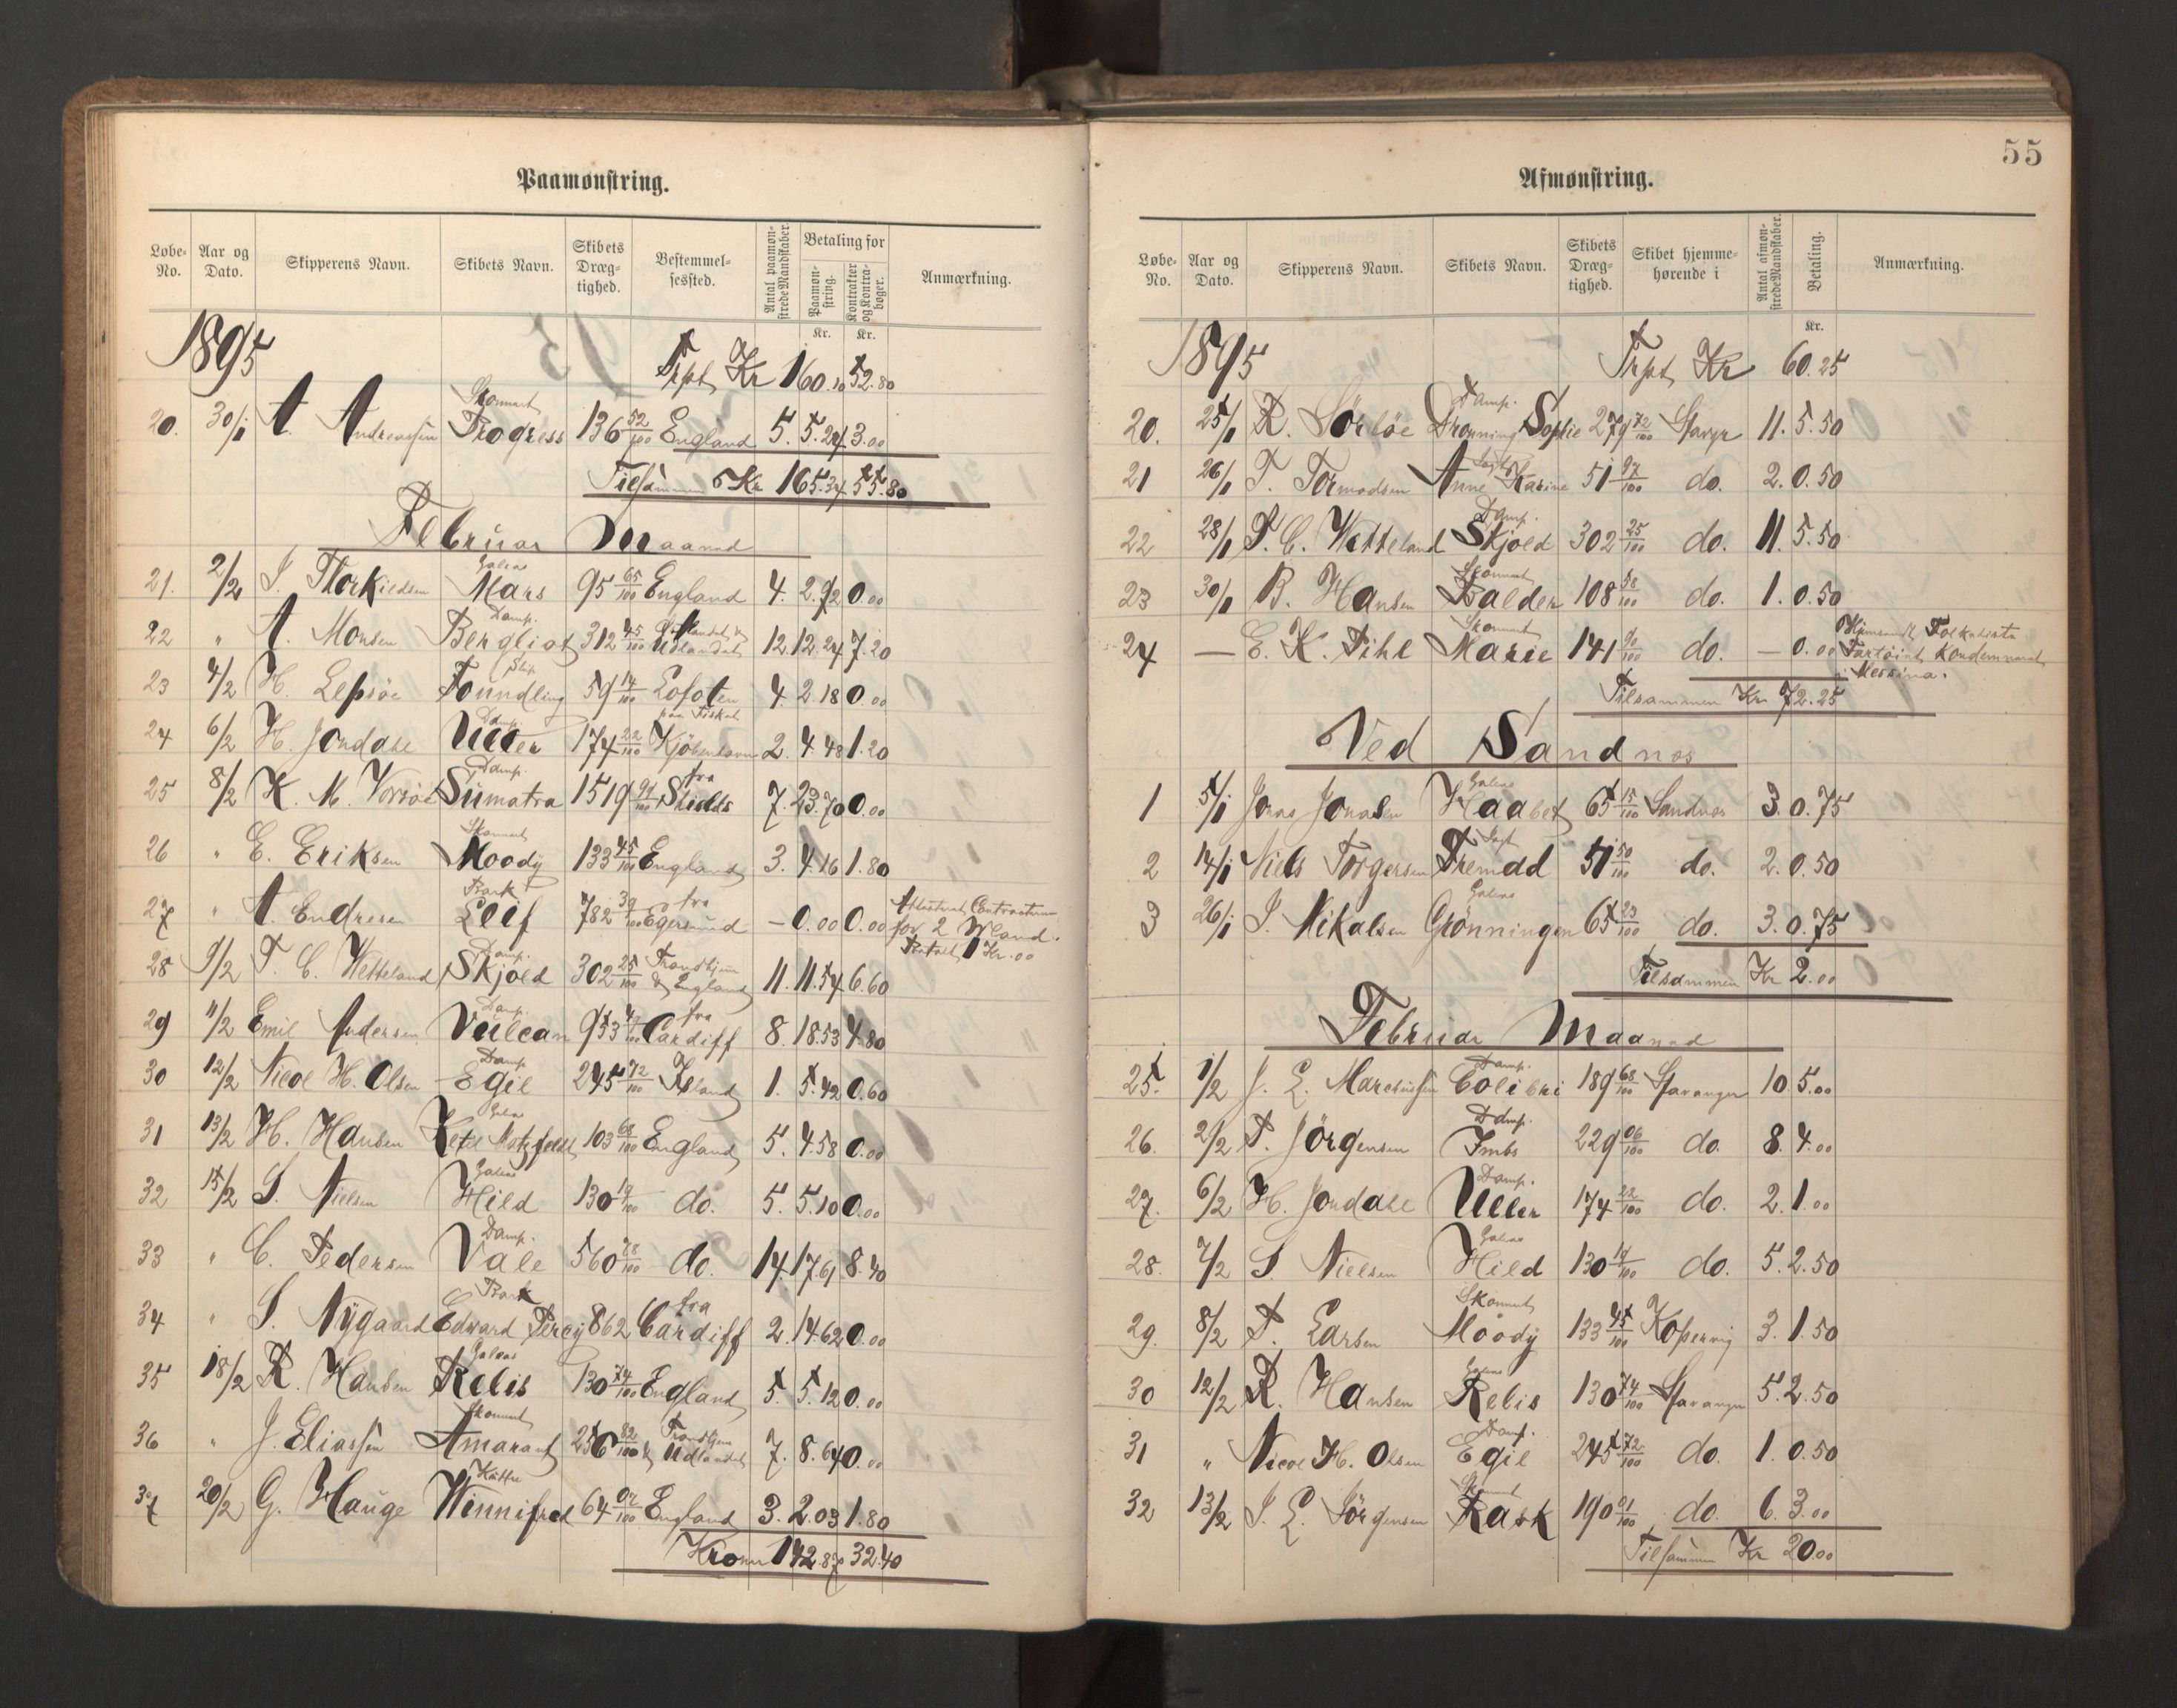 Paamønstring.
Løbe-No. Aar og Dato. Skipperens Navn. Skibets Navn. Skibets Dræg-tighed. Bestemmel-sessted. Antal paamøn-strede Mandskaber. Betaling for Paamøn-string. Kontrakter og Kontra-bøger. Anmærkning.
Kr. Kr.
1895 Trpt Kr 160.10 52.80
20. 30/1 A. Andreassen Skonnert Progress 136 52/100 England 5. 5.24 3.00
Tilsammen Kr 165.34 55.80
Februar Maaned
21. 2/2 I. Thorkildsen Galeas Mars 95 65/100 England 4. 2.92 0.00
22 " A. Monsen Damp. Bergliot 312 45/100 Udlandet 12. 12.24 7.20
23 4/2 H. Lepsöe Slup Foundling 59 14/100 Lofoten paa Fiskeri 4 2.18 0.00
24 6/2 H. Jondahl Damp. Uller 174 22/100 Kjöbenhavn 2. 4.48 1.20
25 8/2 K. M. Vorsöe Damp. Sumatra 1519 94/100 fra Shields 7. 23.70 0.00
26 " E. Eriksen Skonnert Moody 133 45/100 England 3. 4.16 1.80
27 " A. Endresen Bark Leif 782 39/100 fra Egersund – 0.00 0.00 Attesteret Contracten for 2 Mand. Betalt 1 Kr.00
28 9/2 T. C. Wetteland Damp. Skjold 302 25/100 Trondhjem & England 11. 11.54 6.60
29 11/2 Emil Andersen Damp. Vulcan 953 49/100 fra Cardiff 8. 18.53 4.80
30 12/2 Nicol H. Olsen Damp Egil 245 72/100 Island 1. 5.42 0.60
31 13/2 H. Hansen Galeas Ketil Motzfeldt 103 68/100 England 5. 4.58 0.00
32 15/2 S. Nielsen Galeas Hild 130 19/100 do. 5. 5.10 0.00
33 " C. Pedersen Damp. Vale 560 78/100 do. 14. 17.61 8.40
34 " S. Nÿgaard Bark Edward Percy 862 fra Cardiff 2. 14.62 0.00
35 18/2 R. Hansen Galeas Relis 130 74/100 England 5. 5.12 0.00
36 " J. Eliassen Skonnert Amarant 256 82/100 Trondhjem & Udlandet 7. 8.64 0.00
37 20/2 G. Hauge Kutter Winnifred 64 02/100 England 3. 2.03 1.80
Kroner 142.87 32.40
55
Afmønstring.
Løbe-No. Aar og Dato. Skipperens Navn. Skibets Navn. Skibets Dræg-tighed. Skibet hjemme-hørende i Antal afmøn-strede Mandskaber. Betaling. Anmærkning.
Kr.
1895 Trpt Kr 60.25
20. 25/1 R. Sörböe Damp. Dronning Sophie 279 72/100 Stavgr 11. 5.50
21 26/1 T. Tormodsen Jagt Anne Karine 51 97/100 do. 2. 0.50
22 28/1 T. C. Wetteland Damp. Skjold 302 25/100 do. 11. 5.50
23 30/1 B. Hansen Skonnert Balder 108 58/100 do. 1. 0.50
24 – E. K. Pihl Skonnert Marie 141 do. – 0.00 Hjemsendt Folkeliste Fartöiet kondemneret i Messina.
Tilsammen Kr 72.25
Ved Sandnæs
1 5/1 Jonas Jonasen Galeas Haabet 65 15/100 Sandnæs 3. 0.75
2 14/1 Niels Torgersen Jagt Fremad 51 50/100 do. 2. 0.50
3 26/1 I. Mikalsen Galeas Grönningen 65 23/100 do. 3. 0.75
Tilsammen Kr 2.00
Februar Maaned
25. 1/2 J. L. Marcussen Damp. Colibri 189 68/100 Stavanger 10 5.00
26. 2/2 T. Jörgensen Damp. Imbs 229 06/100 do. 8. 4.00
27. 6/2 H. Jondahl Damp. Uller 174 22/100 do. 2. 1.00
28. 7/2 S. Nielsen Galeas Hild 130 19/100 do. 5. 2.50
29. 8/2 T. Larsen Skonnert Moody 133 45/100 Kopervig 3. 1.50
30 12/2 R. Hansen Galeas Relis 130 74/100 Stavanger 5. 2.50
31 " Nicol H. Olsen Damp. Egil 245 72/100 do. 1. 0.50
32 13/2 I. L. Jörgensen Skonnert Rask 190 01/100 do. 6. 3.00
Tilsammen Kr 20.00